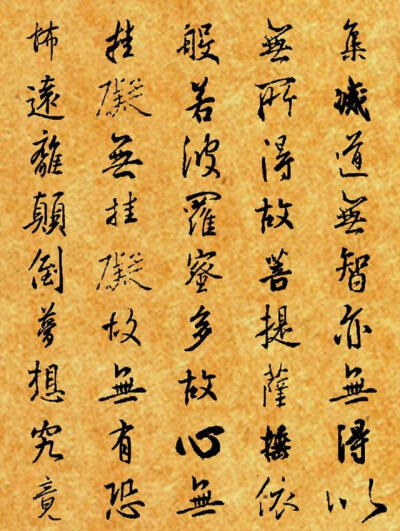 集滅道無智亦無得以
無所得故菩提薩埵依
般若波羅蜜多故心無
挂礙無挂礙故無有恐
怖遠離顛倒夢想究竟